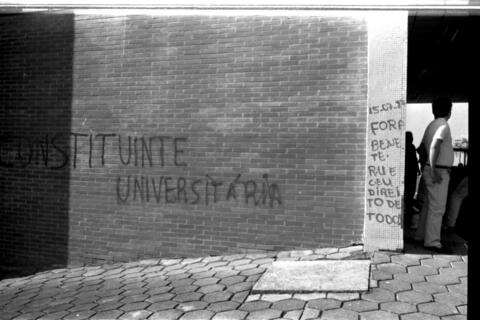 CONSTITUINTE
UNIVERSITÁRIA
FORA
BENE
TE.
RU E
CEU
DIREI
TO DE
TODOS